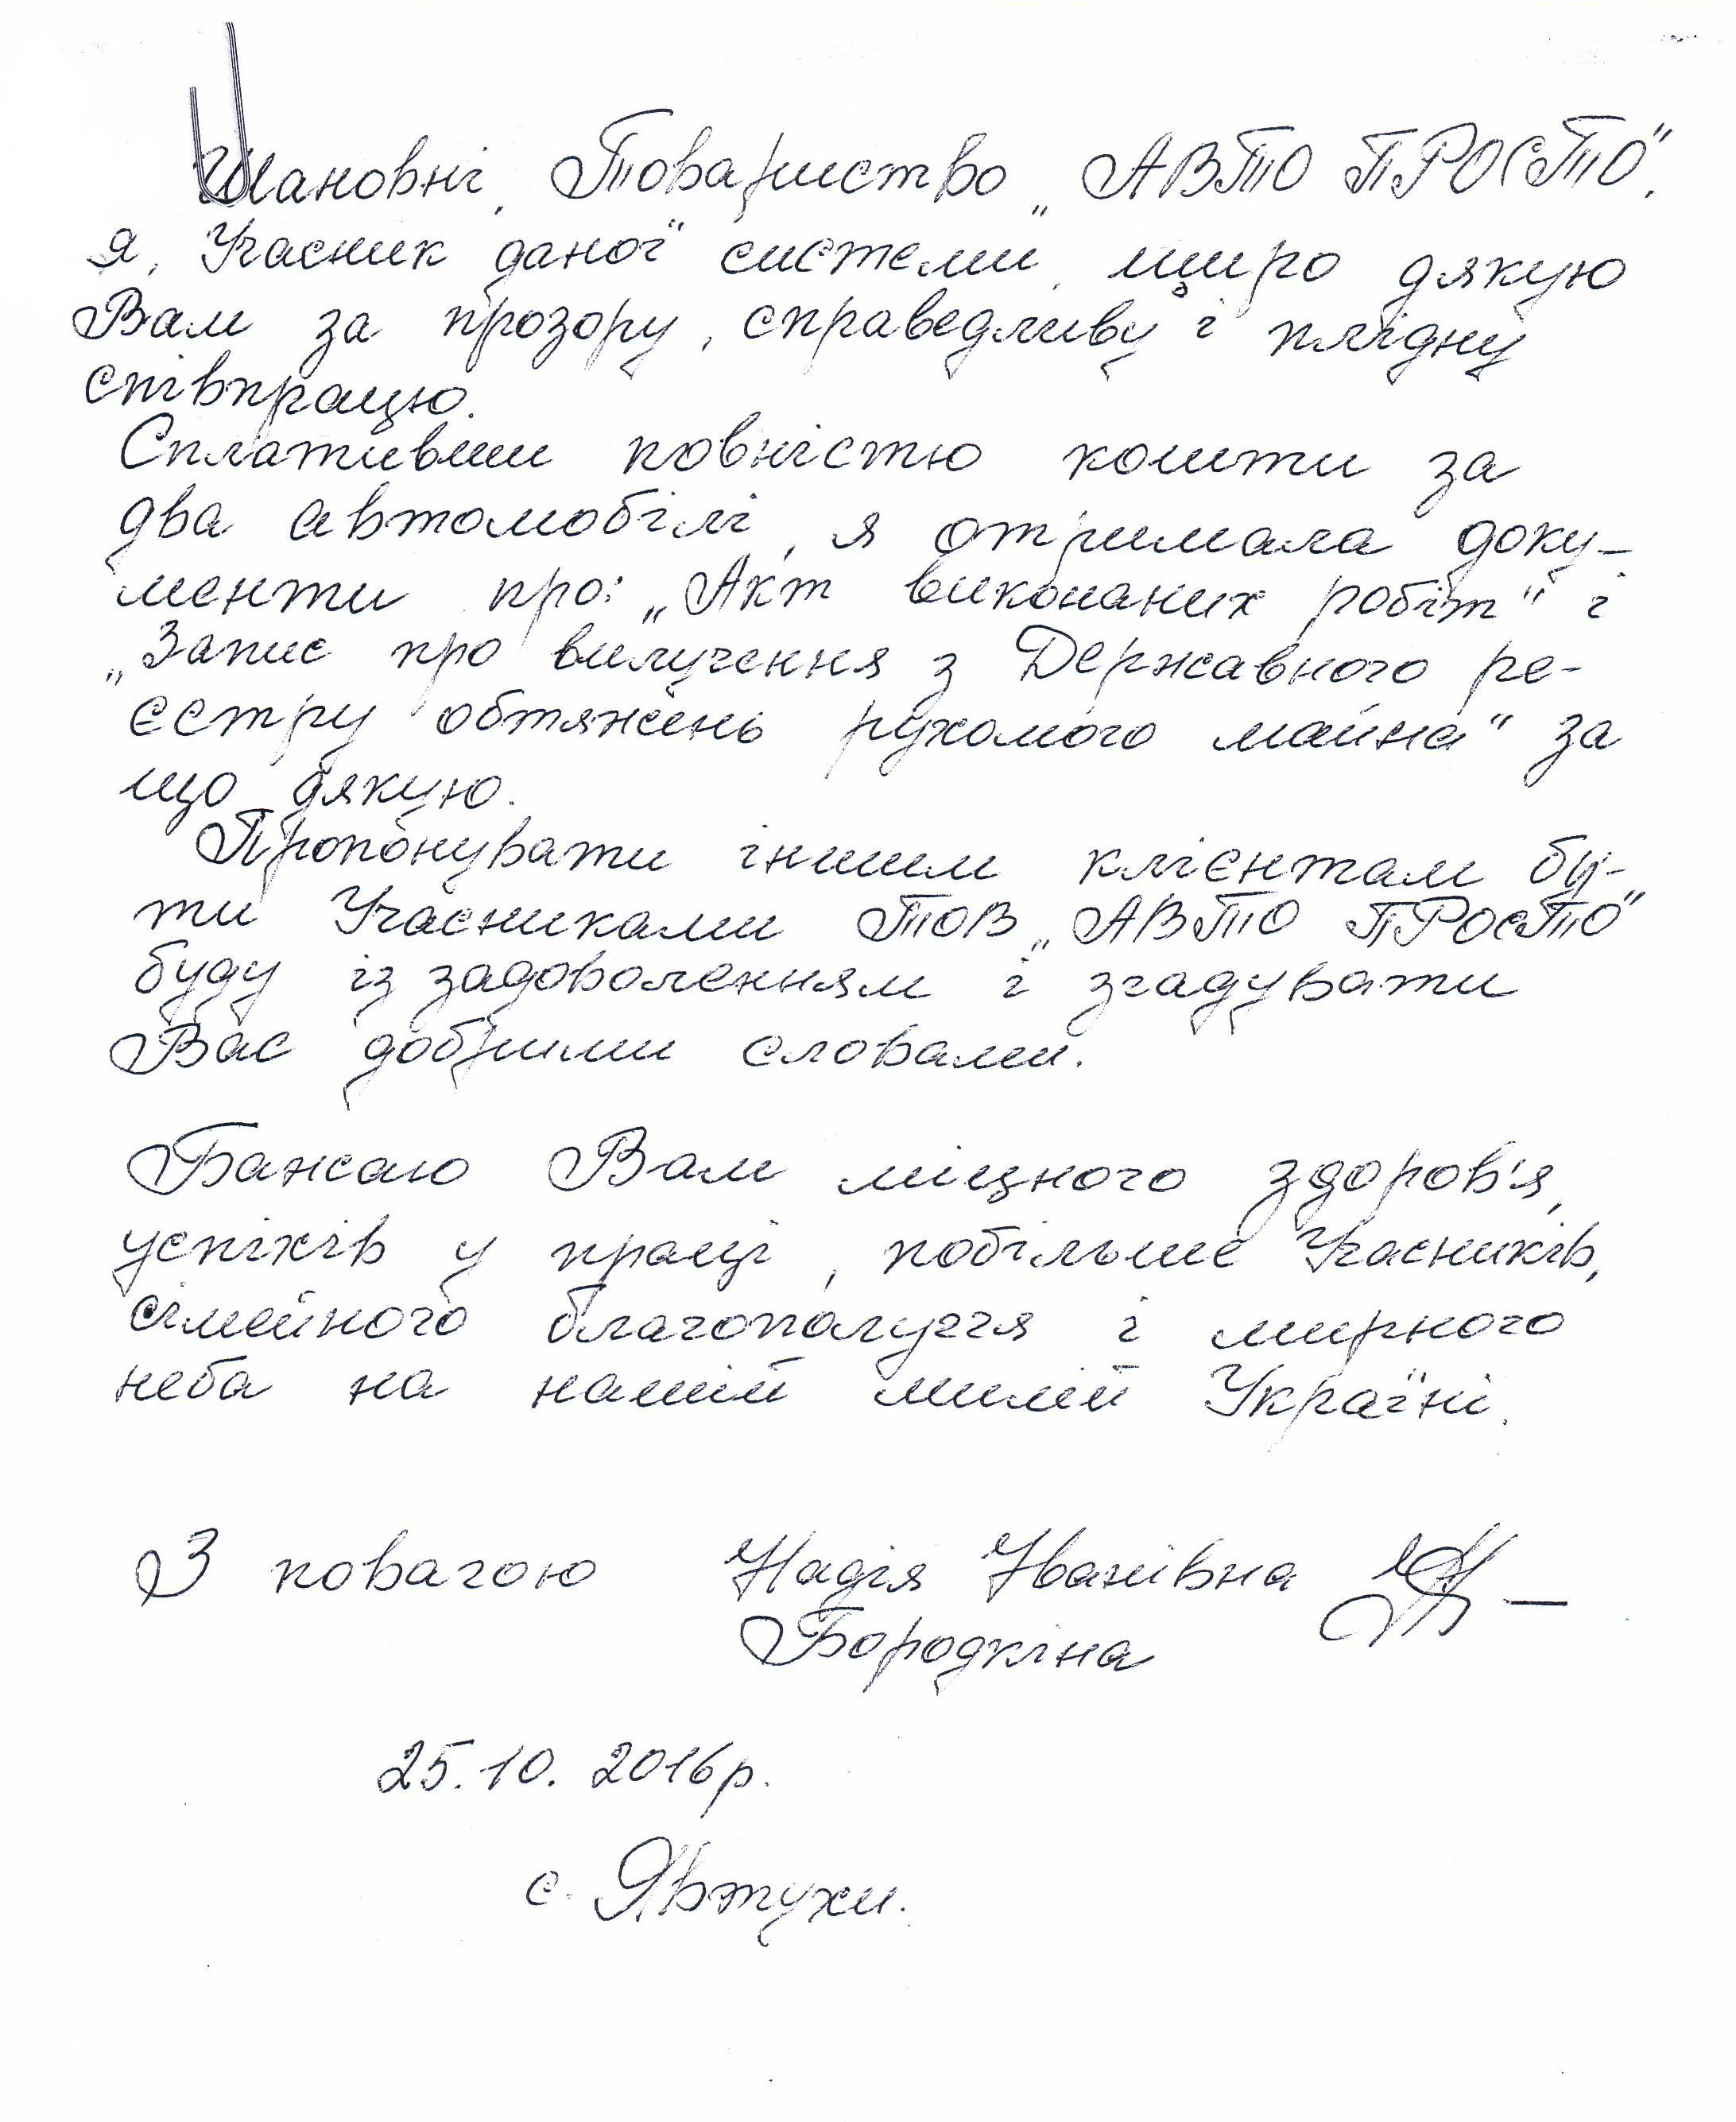 Шановні, Товариство „АВТО ПРОСТО",
я, Учасник даної системи, щиро дякую
Вам за прозору, справедливу і плідну
співпрацю.
Сплативши повністю кошти за
два автомобілі, я отримала доку-
менти про: „Акт виконаних робіт" і
„Запис про вилучення з Державного ре-
єстру обтяжень рухомого майна" за
що дякую.
Пропонувати іншим клієнтам бу-
ти Учасниками ТОВ „АВТО ПРОСТО"
буду із задоволенням і згадувати
Вас добрими словами.
Бажаю Вам міцного здоров'я,
успіхів у праці, побільше Учасників,
сімейного благополуччя і мирного
неба на нашій милій Україні.
З повагою Надія Іванівна
Бородкіна
25.10.2016р.
с. Явтухи.